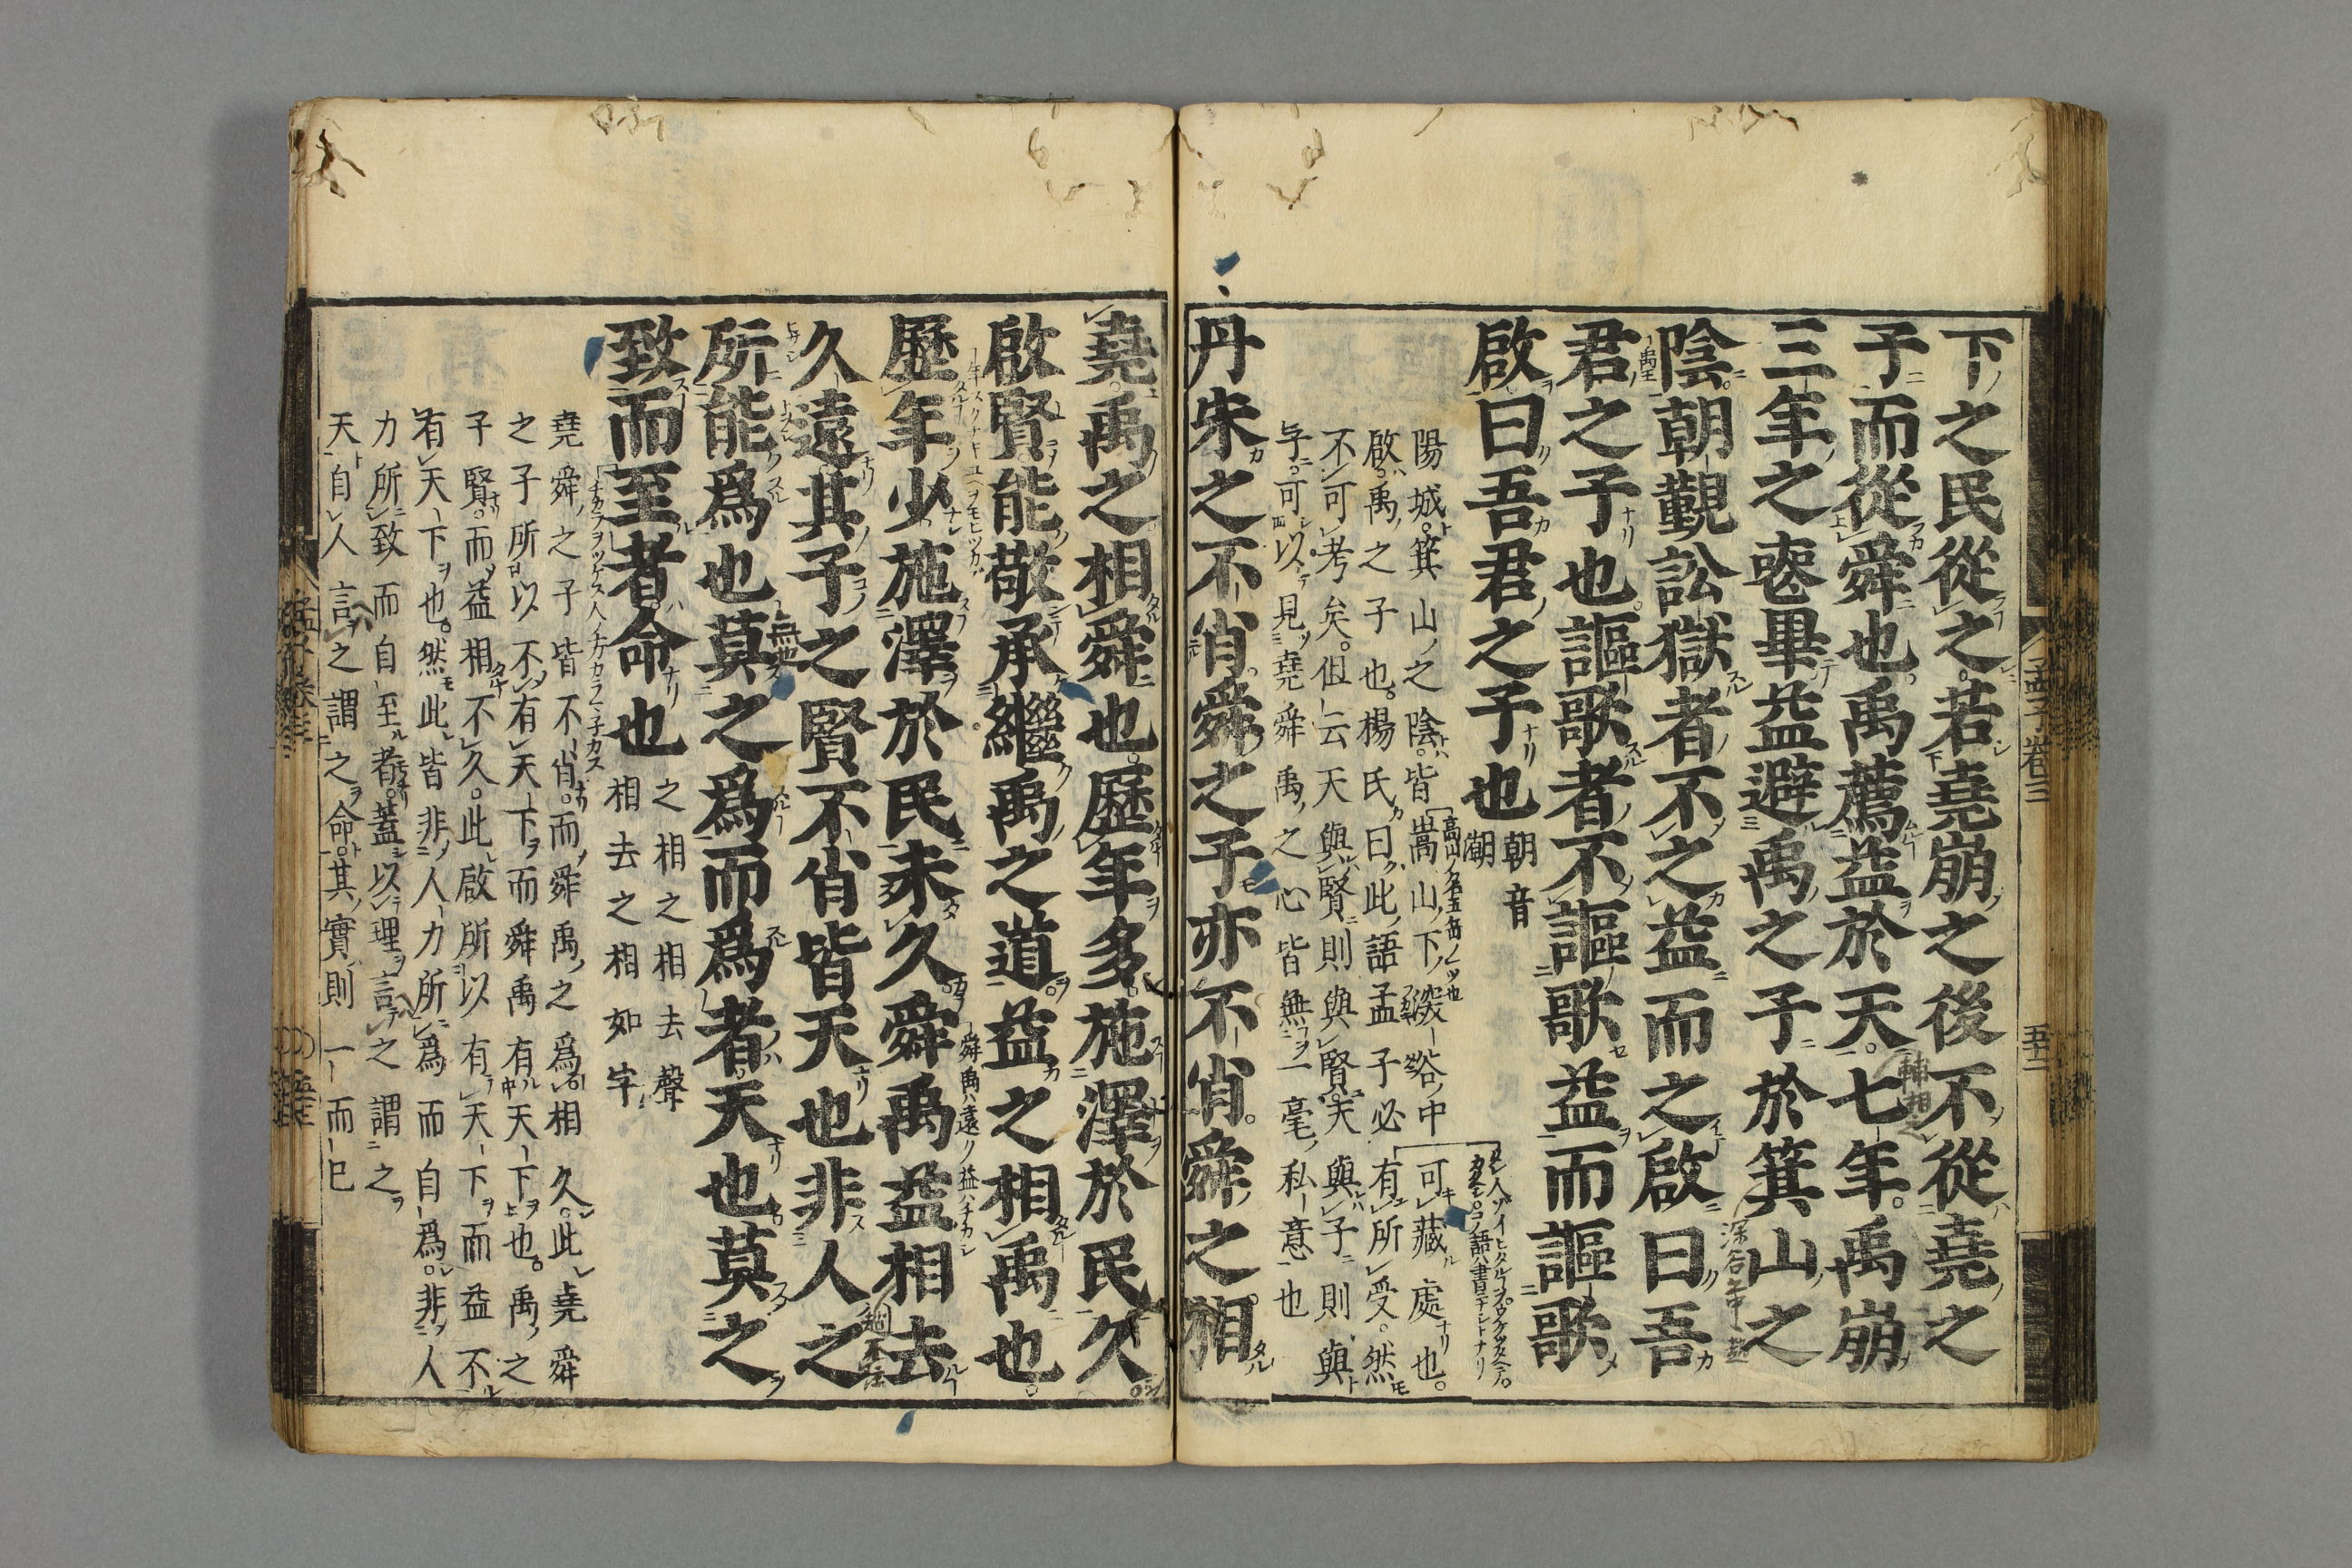 下之民從之若堯崩之後不從堯之
子而從舜也禹薦益於天七年禹崩
三年之喪畢益避禹之子於箕山之
陰朝覲訟獄者不之益而之啟曰吾
君之子也謳歌者不謳歌益而謳歌
啟曰吾君之子也
朝音
潮
陽城箕山之陰皆嵩山下深谷中可藏處也
啟禹之子也楊氏曰此語孟子必有所受然
不可考矣但云天與賢則與賢天與子則與
子可以見堯舜禹之心皆無一毫私意也
丹朱之不肖舜之子亦不肖舜之相
孟子卷三
五十二
堯禹之相舜也歷年多施澤於民久
啟賢能敬承繼禹之道益之相禹也
歷年少施澤於民未久舜禹益相去
久遠其子之賢不肖皆天也非人之
所能為也莫之為而為者天也莫之
致而至者命也
之相之相去聲
相去之相如字
堯舜之子皆不肖而舜禹之為相久此堯舜
之子所以不有天下而舜禹有天下也禹之
子賢而益相不久此啟所以有天下而益不
有天下也然此皆非人力所為而自為非人
力所致而自至者蓋以理言之謂之
天自人言之謂之命其實則一而已